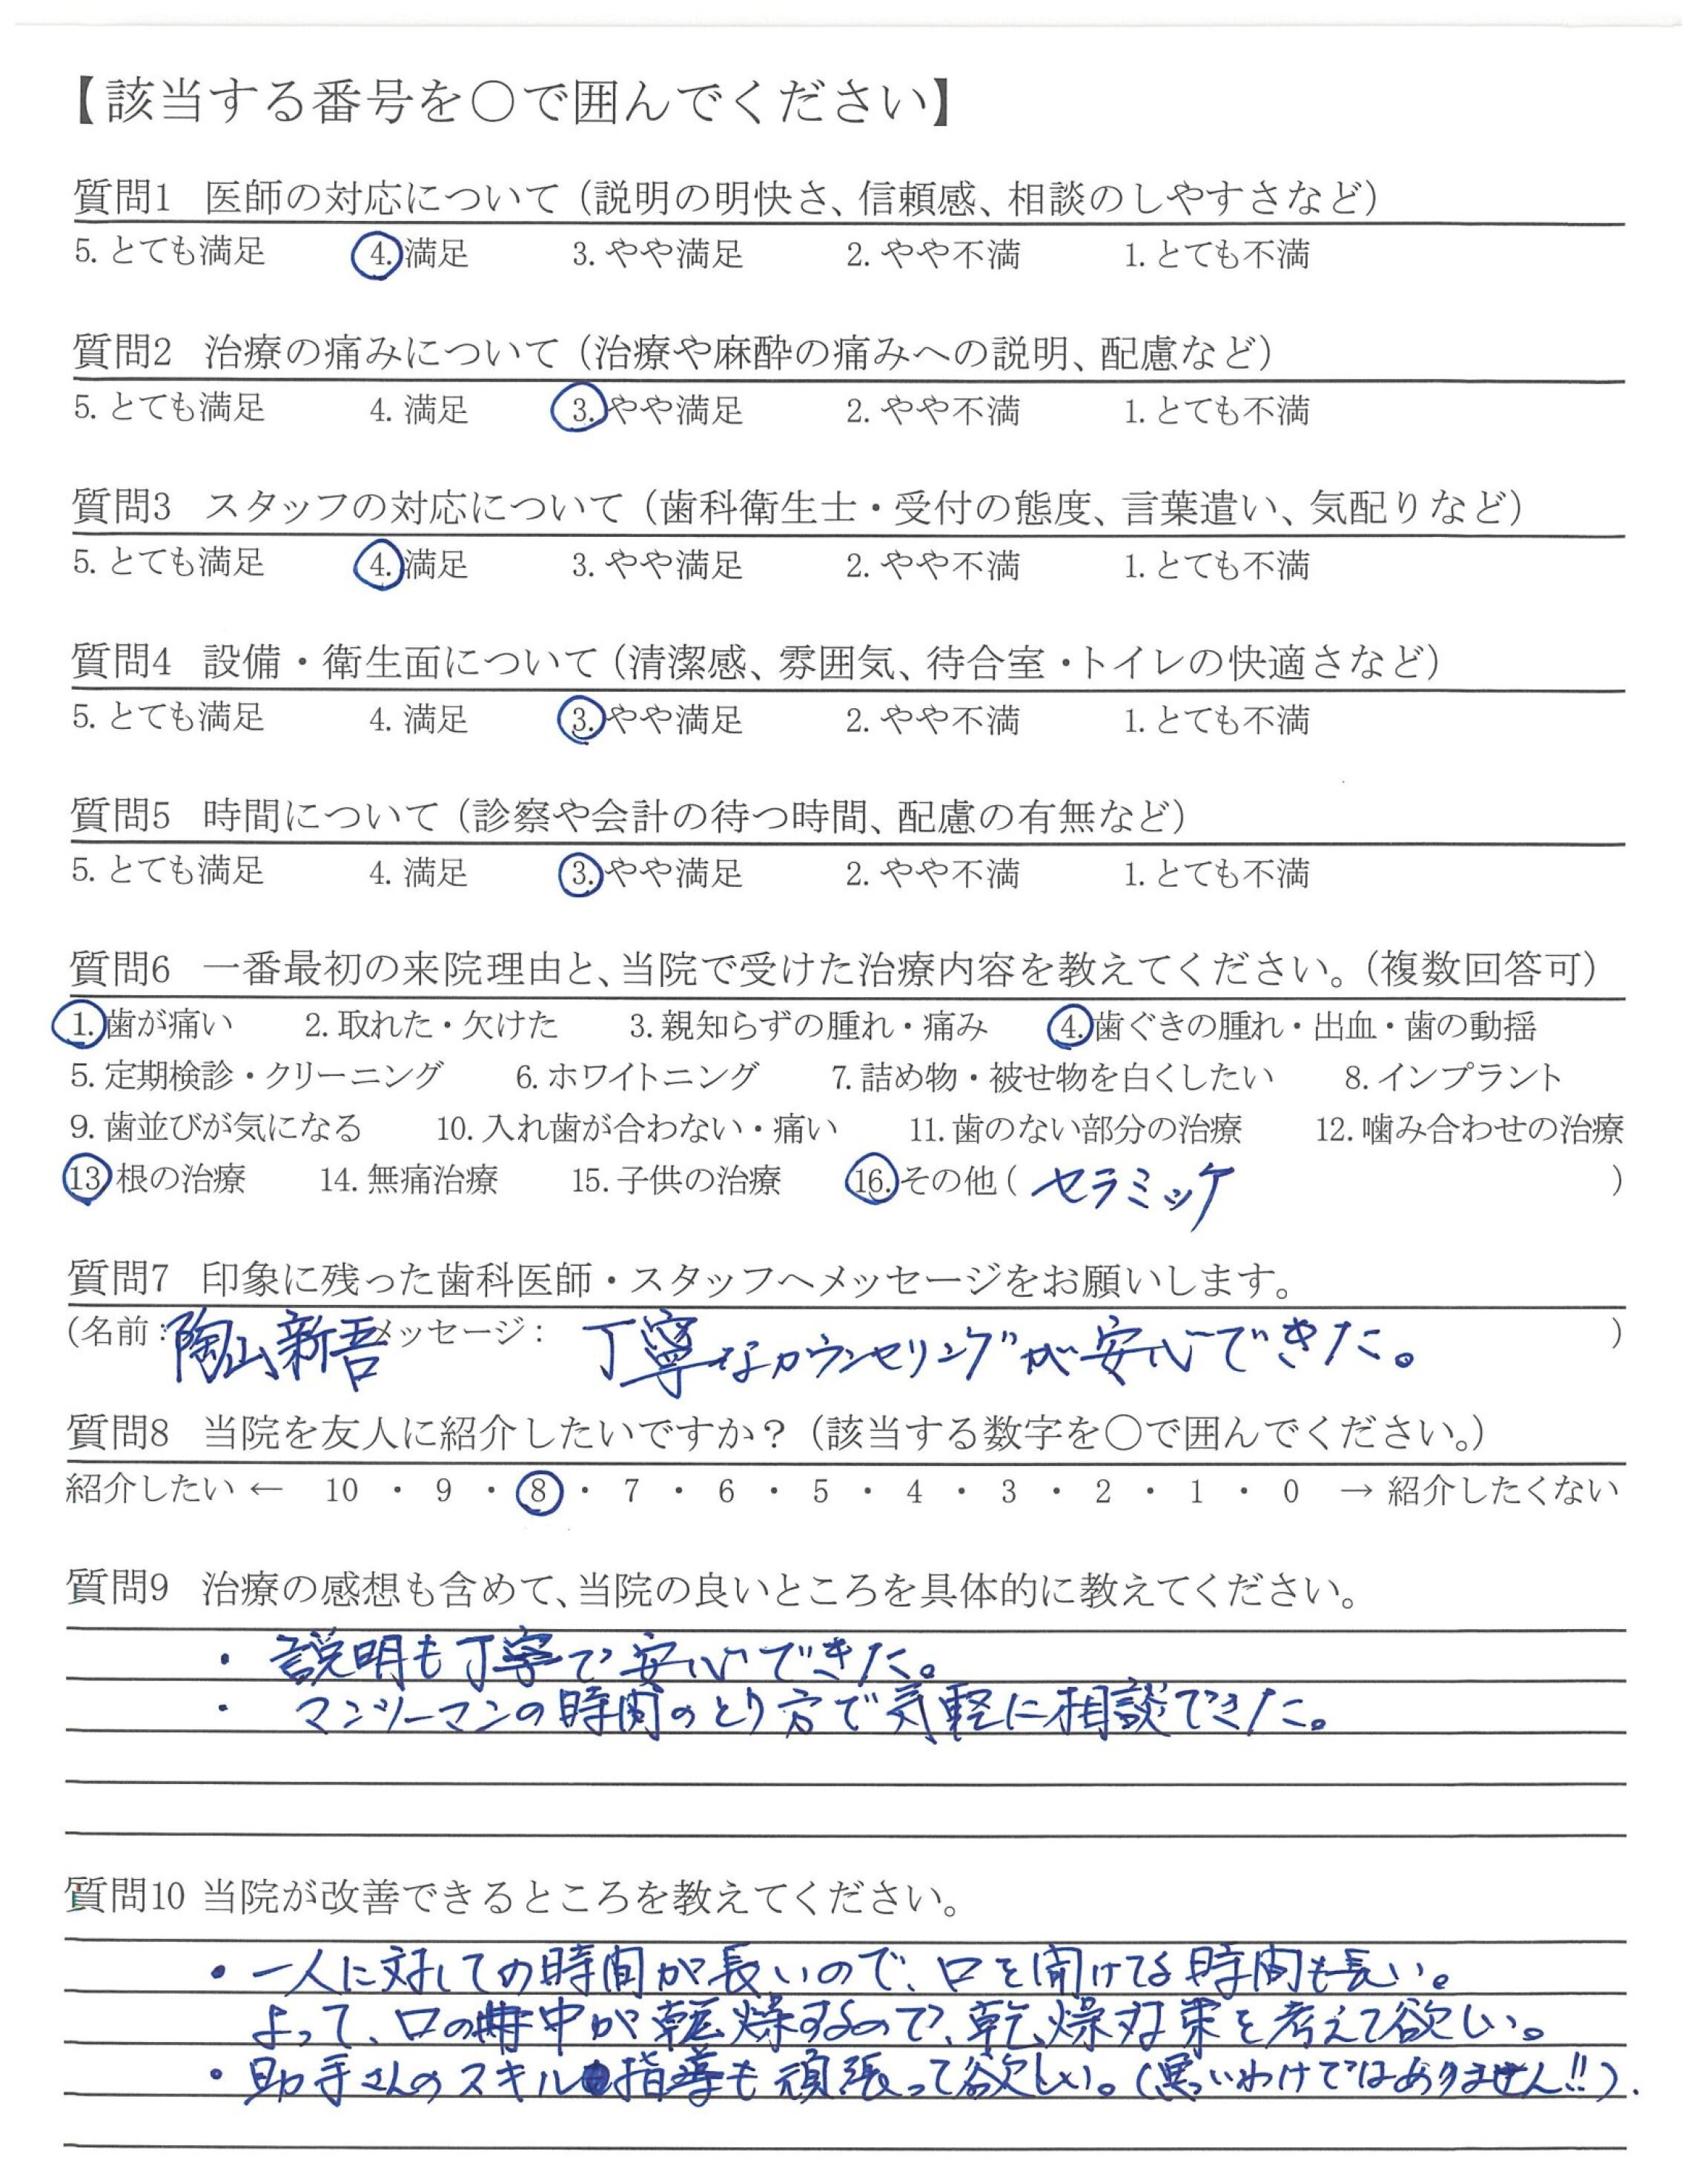 【該当する番号を○で囲んでください】
質問1 医師の対応について（説明の明快さ、信頼感、相談のしやすさなど）
5. とても満足 4. 満足 3. やや満足 2. やや不満 1. とても不満
質問2 治療の痛みについて（治療や麻酔の痛みへの説明、配慮など）
5. とても満足 4. 満足 3. やや満足 2. やや不満 1. とても不満
質問3 スタッフの対応について（歯科衛生士・受付の態度、言葉遣い、気配りなど）
5. とても満足 4. 満足 3. やや満足 2. やや不満 1. とても不満
質問4 設備・衛生面について（清潔感、雰囲気、待合室・トイレの快適さなど）
5. とても満足 4. 満足 3. やや満足 2. やや不満 1. とても不満
質問5 時間について（診察や会計の待つ時間、配慮の有無など）
5. とても満足 4. 満足 3. やや満足 2. やや不満 1. とても不満
質問6 一番最初の来院理由と、当院で受けた治療内容を教えてください。（複数回答可）
1. 歯が痛い 2. 取れた・欠けた 3. 親知らずの腫れ・痛み 4. 歯ぐきの腫れ・出血・歯の動揺
5. 定期検診・クリーニング 6. ホワイトニング 7. 詰め物・被せ物を白くしたい 8. インプラント
9. 歯並びが気になる 10. 入れ歯が合わない・痛い 11. 歯のない部分の治療 12. 噛み合わせの治療
13 根の治療 14. 無痛治療 15. 子供の治療 16. その他（ セラミック ）
質問7 印象に残った歯科医師・スタッフへメッセージをお願いします。
（名前：陶山新吾 メッセージ： 丁寧なカウンセリングが安心できた。 ）
質問8 当院を友人に紹介したいですか？（該当する数字を○で囲んでください。）
紹介したい ← 10 ・ 9 ・ 8 ・ 7 ・ 6 ・ 5 ・ 4 ・ 3 ・ 2 ・ 1 ・ 0 → 紹介したくない
質問9 治療の感想も含めて、当院の良いところを具体的に教えてください。
・ 説明も丁寧で安心できた。
・ マンツーマンの時間のとり方で気軽に相談できた。
質問10 当院が改善できるところを教えてください。
・一人に対しての時間が長いので、口を開けてる時間も長い。
よって、口の中が乾燥するので、乾燥対策を考えて欲しい。
・助手さんのスキル指導も頑張って欲しい。（悪いわけではありません!!）.